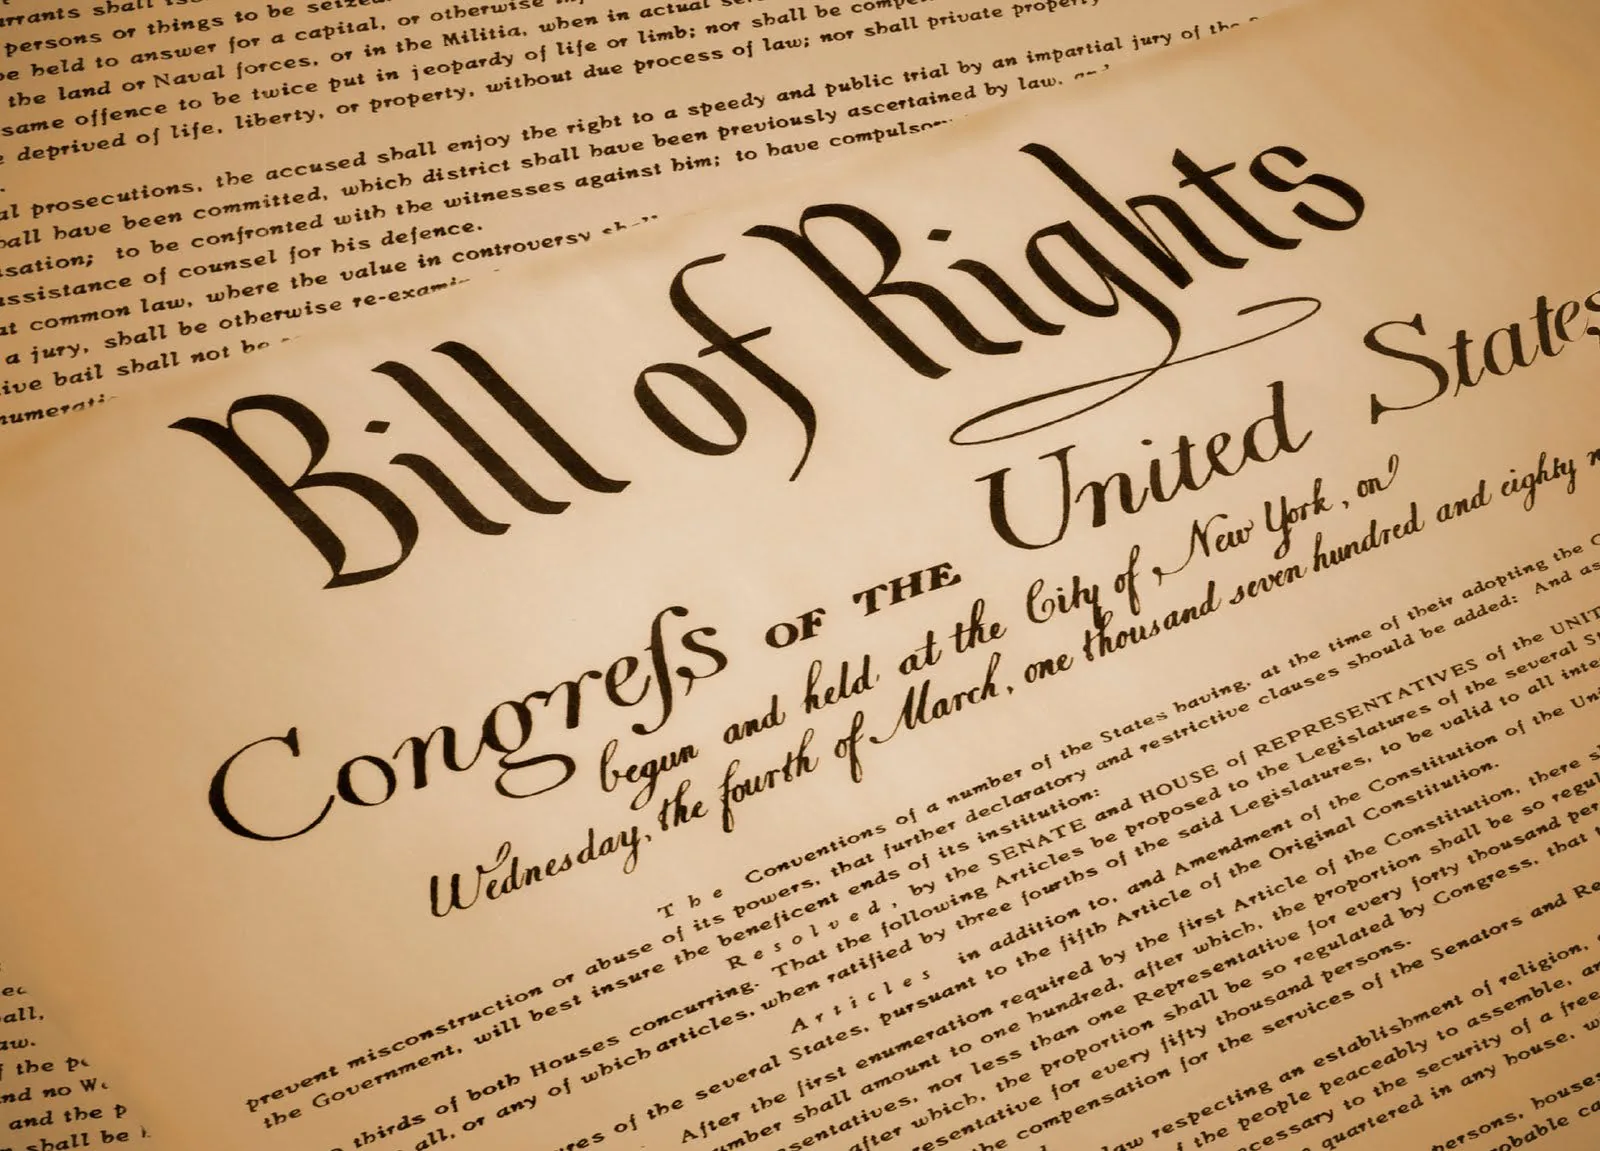 persons or things to be seized
be held to answer for a capital, or otherwise
the land or Naval forces, or in the Militia, when in actual
same offence to be twice put in jeopardy of life or limb; nor shall be
deprived of life, liberty, or property, without due process of law; nor shall private property
prosecutions, the accused shall enjoy the right to a speedy and public trial by an impartial jury of the
have been committed, which district shall have been previously ascertained by law, and
to be confronted with the witnesses against him; to have
assistance of counsel for his defence.
at common law, where the value in controversy shall
a jury, shall be otherwise
bail shall not be
Bill of Rights
Congreſs OF THE United States
begun and held at the City of New York, on
Wednesday, the fourth of March, one thousand seven hundred and eighty
The Conventions of a number of the States having, at the time of their adopting the
prevent misconstruction or abuse of its powers, that further declaratory and restrictive clauses should be added: And as
the Government, will best insure the beneficent ends of its institution:
Resolved, by the SENATE and HOUSE of REPRESENTATIVES of the
thirds of both Houses concurring. That the following Articles be proposed to the Legislatures of the several
all, or any of which articles, when ratified by three fourths of the said Legislatures, to be valid to all
Articles in addition to, and Amendment of the Constitution of the
of the several States, pursuant to the fifth Article of the Original Constitution.
After the first enumeration required by the first Article of the Constitution, there
shall amount to one hundred, after which, the proportion shall be so
nor less than one Representative for every forty thousand
after which, the proportion shall be so regulated by Congress, that
for every fifty thousand persons.
the compensation for the services of the Senators and
law respecting an establishment of religion,
of the people peaceably to assemble,
to the security of a free
quartered in any house,
persons,
all,
of the
and no
and the
shall be